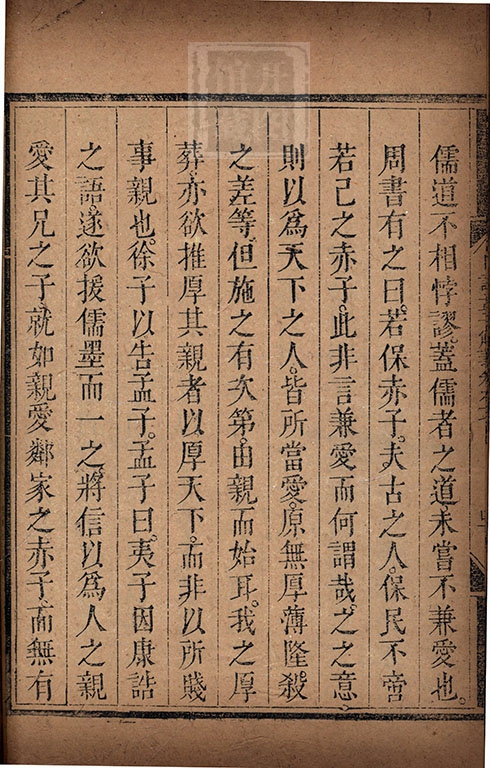 儒道不相悖謬蓋儒者之道未嘗不兼愛也
周書有之曰若保赤子夫古之人保民不啻
若己之赤子此非言兼愛而何謂哉之之意
則以爲天下之人皆所當愛原無厚薄隆殺
之差等但施之有次第由親而始耳我之厚
葬亦欲推厚其親者以厚天下而非以所賤
事親也徐子以告孟子孟子曰夷子因康誥
之語遂欲援儒墨而一之將信以爲人之親
愛其兄之子就如親愛鄰家之赤子而無有